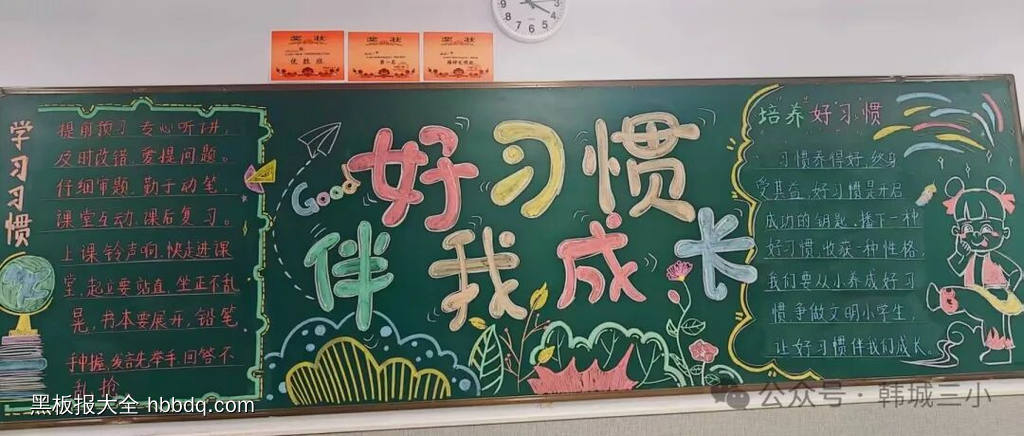 奖状
优胜班
奖状
第一名
奖状
学习习惯
提前预习,专心听讲,
及时改错,爱提问题。
仔细审题,勤于动笔,
课堂互动,课后复习。
上课铃声响,快走进课
堂,起立要站直,坐正不乱
晃,书本要展开,铅笔
种握,发言先举手,回答不
乱抢
Good
好习惯
伴我成长
培养好习惯
习惯养得好,终身
受其益,好习惯是开启
成功的钥匙,播下一种
好习惯,收获一种性格,
我们要从小养成好习
惯,争做文明小学生,
让好习惯伴我们成长。
黑板报大全 hbbdq.com
公众号·韩城三小